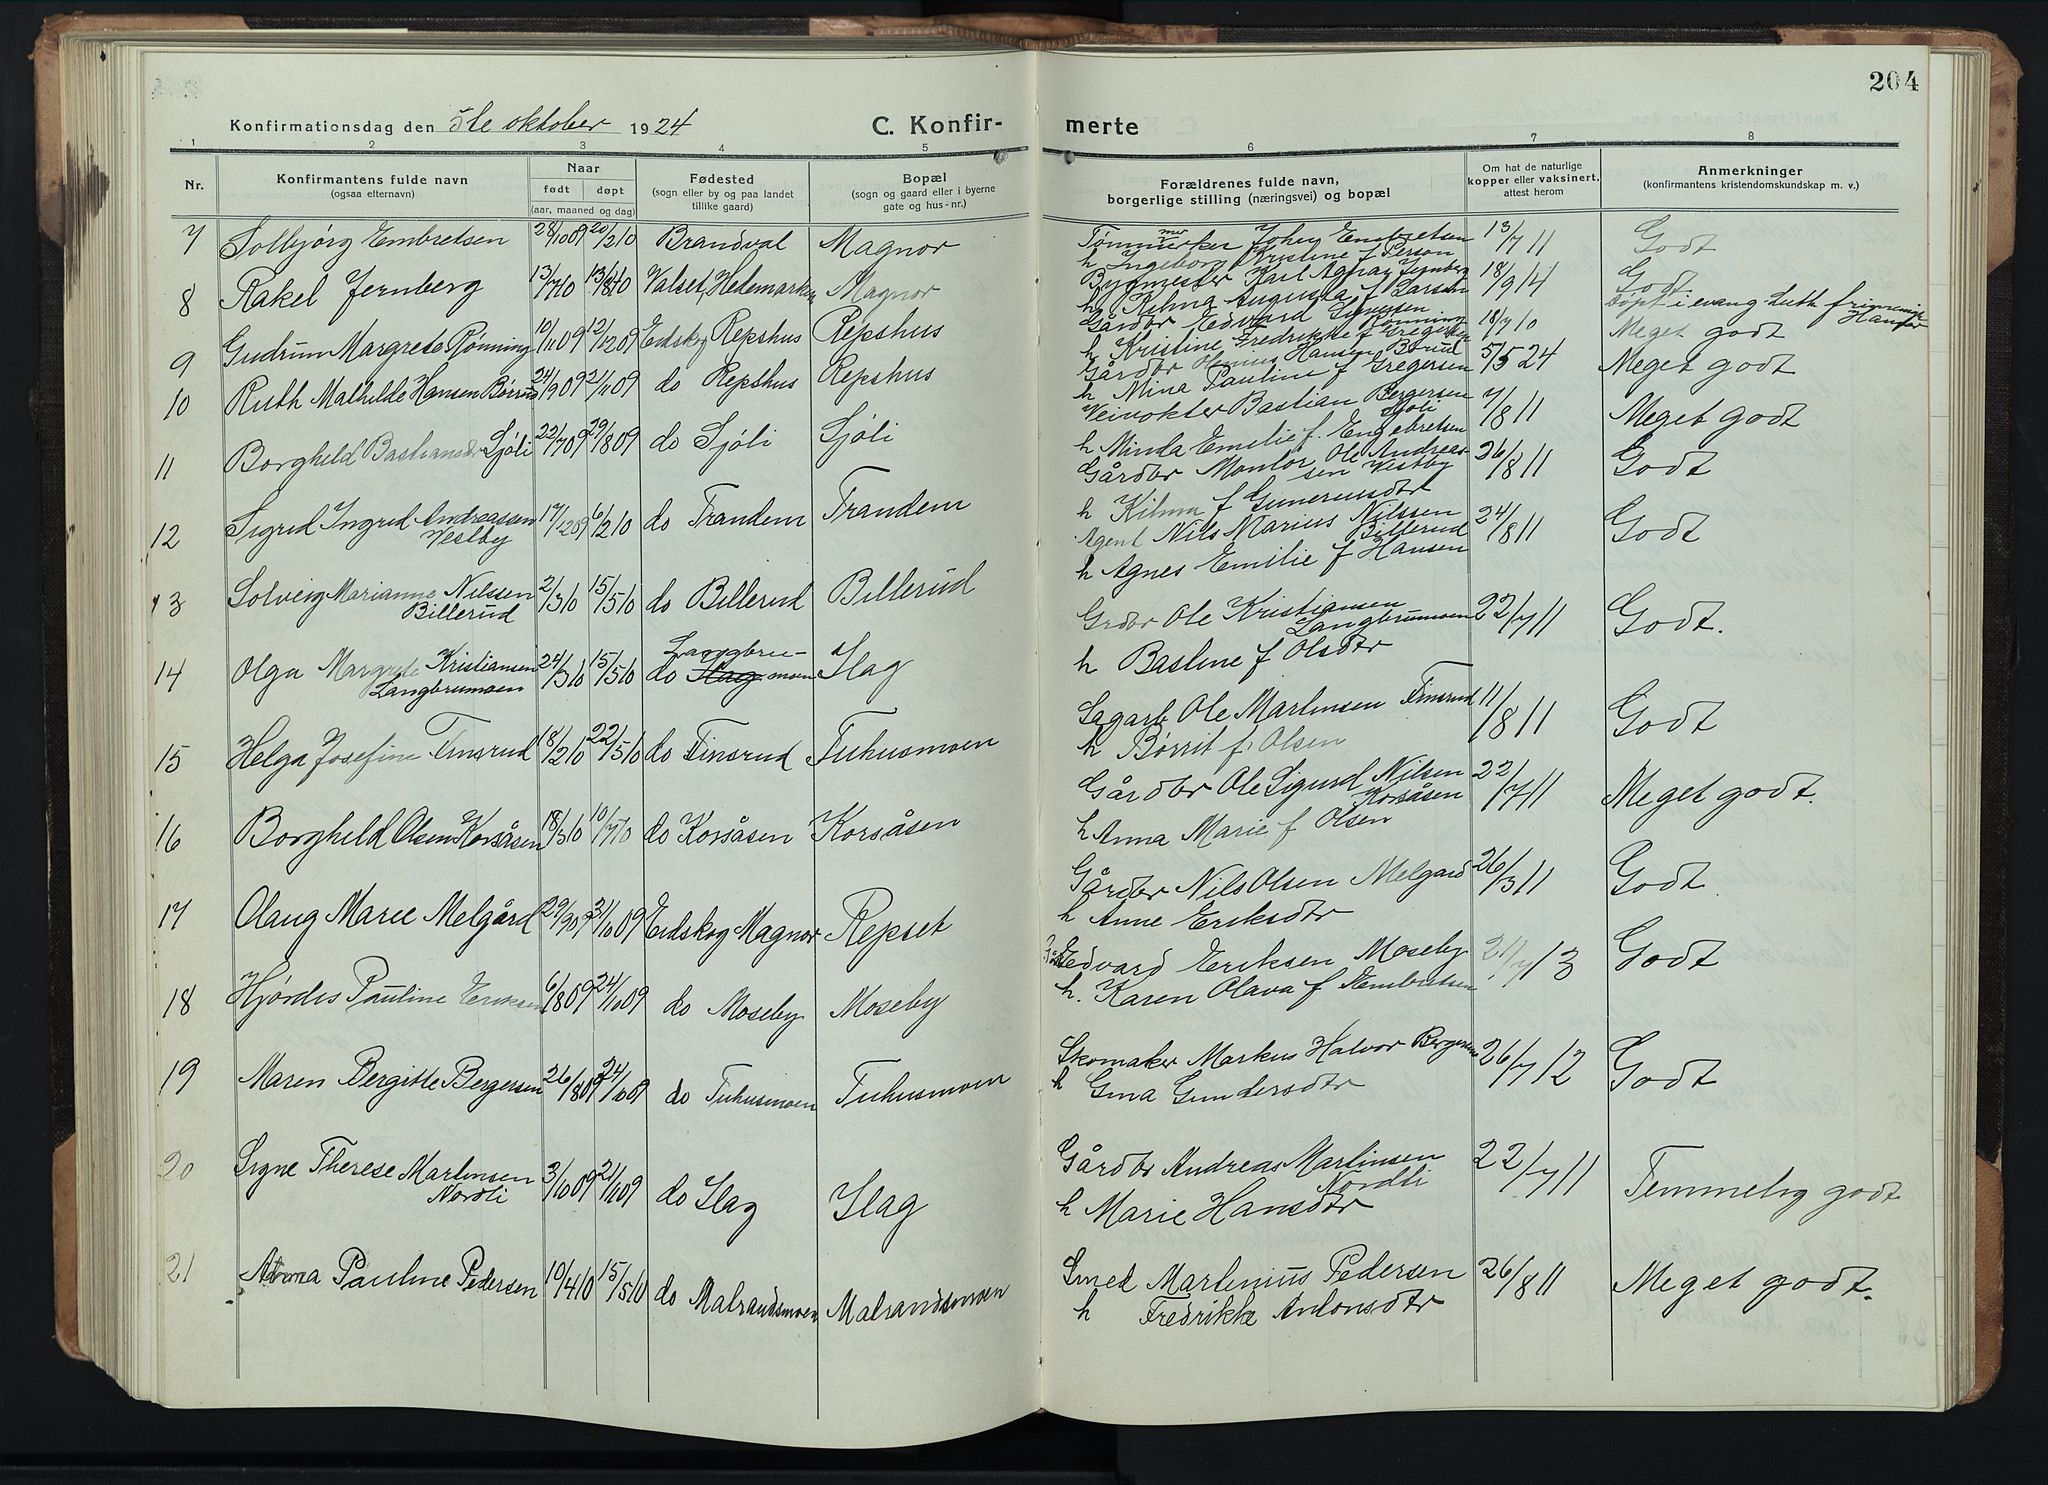 204
Konfirmationsdag den 5te oktober 1924
C. Konfir-
merte
1 2 3 4 5 6 7 8
Nr.
Konfirmantens fulde navn
(ogsaa efternavn)
Naar
født døpt
(aar, maaned og dag)
Fødested
(sogn eller by og paa landet
tillike gaard)
Bopæl
(sogn og gaard eller i byerne
gate og hus-nr.)
Forældrenes fulde navn,
borgerlige stilling (næringsvei) og bopæl
Om hat de naturlige
kopper eller vaksinert,
attest herom
Anmerkninger
(konfirmantens kristendomskundskap m. v.)
7 Solbjørg Embretsen 28/10 09 20/2 10 Brandval Magnor
Johen Embretsen 13/7 11 Godt
h Ingeborg Kristine f Person
8 Rakel Jernberg 13/7 10 13/8 10 Valset, Hedemarken Magnor
Bygmester Karl Jernberg 18/9 14 Godt
h Augusta f Larsen
Døpt i evang. luth frimenigh Hamar
9 Gudrun Margrete Rønning 10/11 09 12/12 09 Eidskog Repshus Repshus
Gårdbr Edvard Rønning Meget godt
h Kristine Fredrikke f Gregersen
10 Ruth Mathilde Hansen Børrud 24/9 09 21/11 09 do Repshus Repshus
Gårdbr Olenius Hansen Børrud 5/5 24 Meget godt
h Mina Pauline f Gregersen
11 Borghild Bastiansdr Sjøli 22/7 09 29/8 09 do Sjøli Sjøli
Veivokter Bastian Bergersen 7/8 11 Meget godt
Sjøli
h Minda Emelie f. Engebretsen
12 Sigrid Ingrid Andreassen 17/12 09 6/2 10 do Trandem Trandem
Vestby
Gårdbr Montør Ole Andreas- 26/8 11 Godt
sen Vestby
h Kilma f Guneriusdtr
13 Solveig Marianne Nilssen 2/3 10 15/5 10 do Billerud Billerud
Billerud
Agent Nils Marius Nilssen 24/8 11 Godt
Billerud
h Agnes Emilie f Hansen
14 Olga Margrete Kristiansen 24/3 10 15/5 10 do Slag Langbru-moen Slag
Langbrumoen
Grdbr Ole Kristiansen 22/7 11 Godt.
Langbrumoen
h Basline f Olsdtr
15 Helga Josefine Finsrud 18/2 10 22/5 10 do Finsrud Tuhusmoen
Sagarb Ole Martinsen Finsrud 11/8 11 Godt
h Børrit f. Olsen
16 Borghild Olsen Korsåsen 18/3 10 10/7 10 do Korsåsen Korsåsen
Gårdbr Ole Sigurd Nilsen 22/7 11 Meget godt.
Korsåsen
h Anna Marie f Olsen
17 Olaug Marie Melgård 29/9 09 31/10 09 Eidskog Magnor Repset
Gårdbr Nils Olsen Melgard 26/3 11 Godt
h Anne Eriksdtr
18 Hjørdis Pauline Eriksen 6/8 09 24/10 09 do Moseby Moseby
Edvard Eriksen Moseby 21/7 13 Godt
h. Karen Olava f Embretsen
19 Maren Bergitte Bergersen 26/8 09 24/10 09 do Tuhusmoen Tuhusmoen
Skomaker Markus Halvor Bergersen 26/7 12 Godt
h Gina Gundersdtr
20 Signe Therese Martinsen 3/10 09 21/11 09 do Slag Slag
Nordli
Gårdbr Andreas Martinsen 22/7 11 Temmelig godt
Nordli
h Marie Hansdtr
21 Pauline Pedersen 10/4 10 15/5 10 do Malrandsmoen Malrandsmoen
Smed Martinius Pedersen 26/8 11 Meget godt.
h Fredrikke Antonsdtr